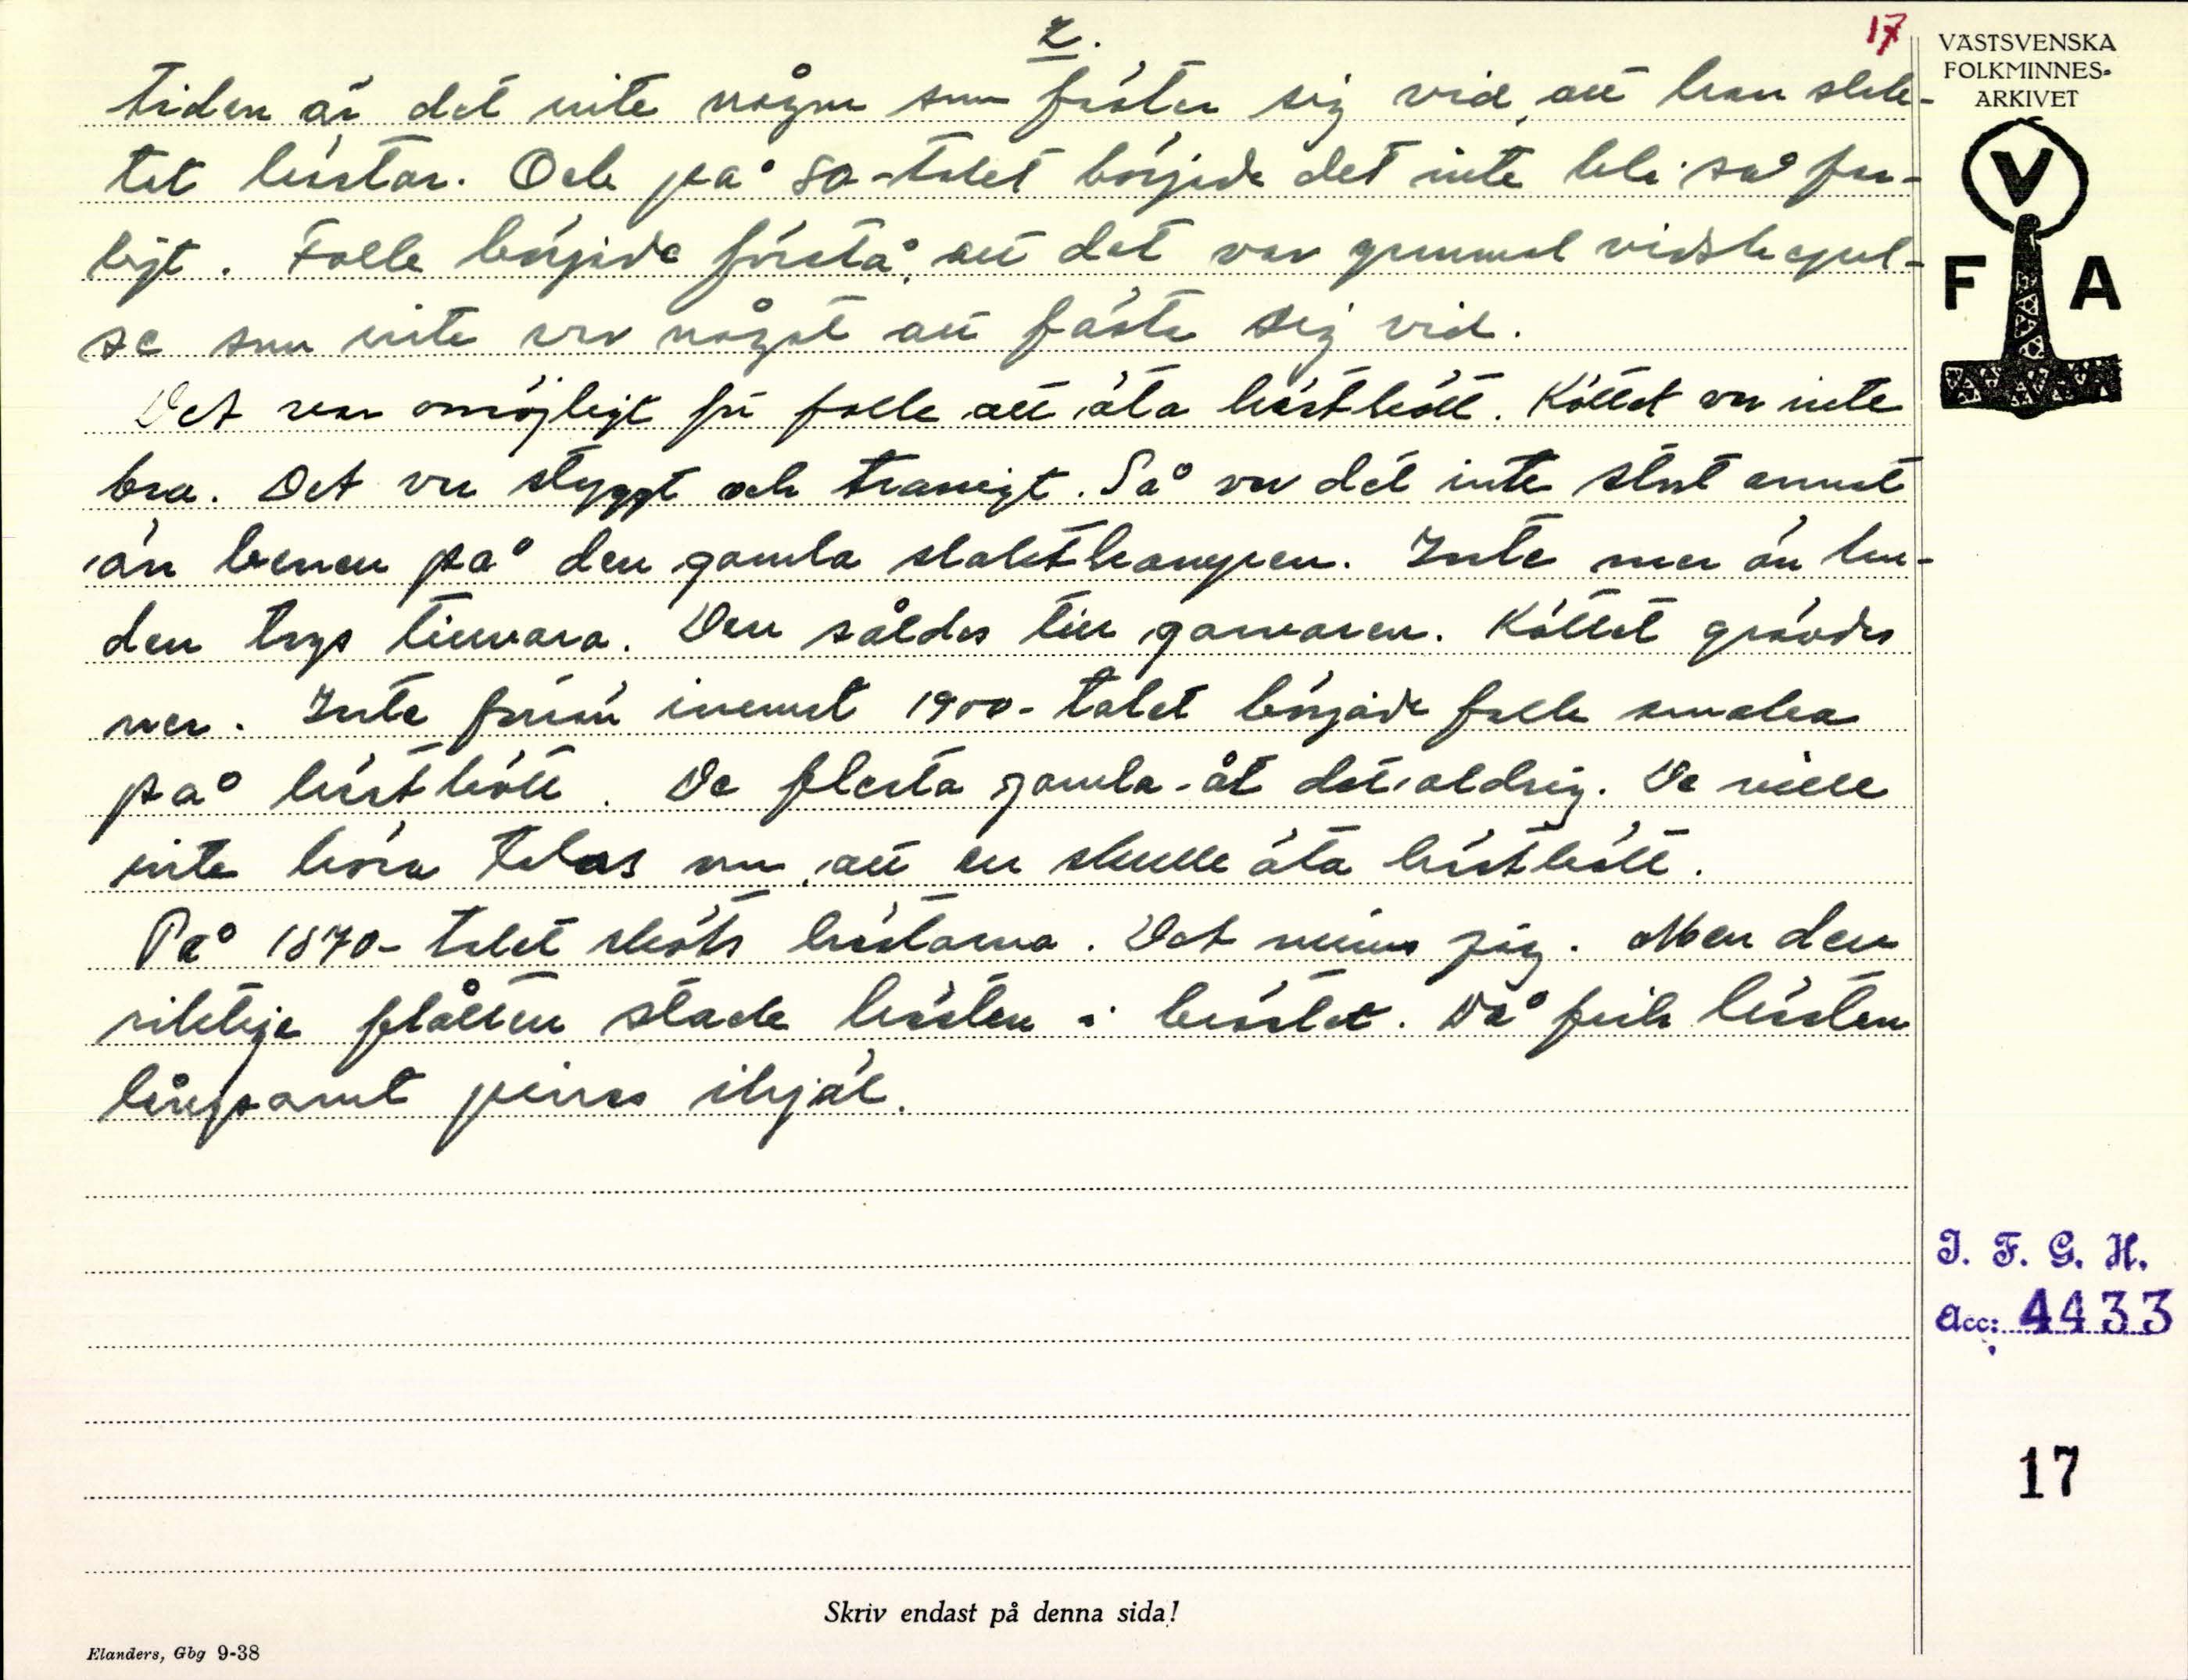 2.
17
tiden är det inte någon som fäster sig vid, att han slak-
tat hästar. Och på 80-talet började det inte bli så far-
ligt. Folk började förstå, att det var gammal vidskepel-
se som inte var något att fästa sig vid.
Det var omöjligt för folk att äta hästkött. Köttet var inte
bra. Det var styggt och tranigt. Så var det inte stort annat
än benen på den gamla slaktkampen. Inte mer än hu-
den togs tillvara. Den såldes till garvaren. Köttet grävdes
ner. Inte förrän inemot 1900-talet började folk smaka
på hästkött. De flesta gamla åt det aldrig. De ville
inte höra talas om, att en skulle äta hästkött.
På 1870-talet sköts hästarna. Det minns jag. Men den
riktige flåtten stack hästen i bröstet. Då fick hästen
långsamt pinas ihjäl.
VÄSTSVENSKA
FOLKMINNES-
ARKIVET
V
F A
I. F. G. H.
Acc: 4433
17
Skriv endast på denna sida!
Elanders, Gbg 9-38